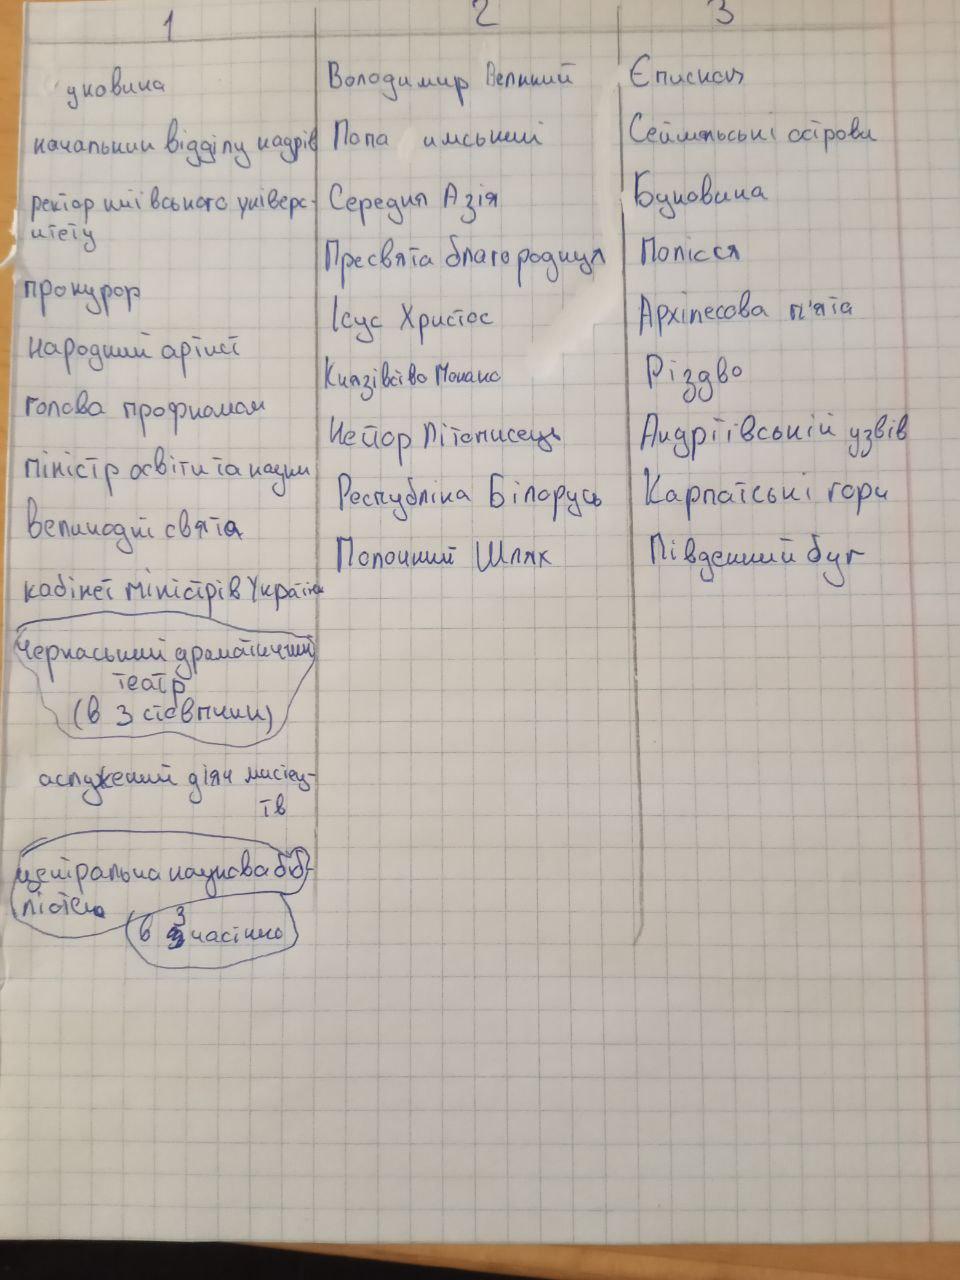 1
уковина
начальник відділу кадрів
ректор київського універс-
итету
прокурор
народний артист
голова профкомом
міністр освіти та науки
великодні свята
кабінет міністрів України
черкаський драматичний
театр
(в 3 стовпчик)
аслужений діяч мистец-
тв
центральна наукова біб-
ліотека
в 3 частино
2
Володимир Великий
Папа имський
Середня Азія
Пресвята благородиця
Ісус Христос
Князівство Монако
Нестор Літописець
Республіка Білорусь
Полочний Шлях
3
Єпископ
Сеймельські острови
Буковина
Полісся
Архілесова п'ята
Різдво
Андріївській узвів
Карпатські гори
Південний буг